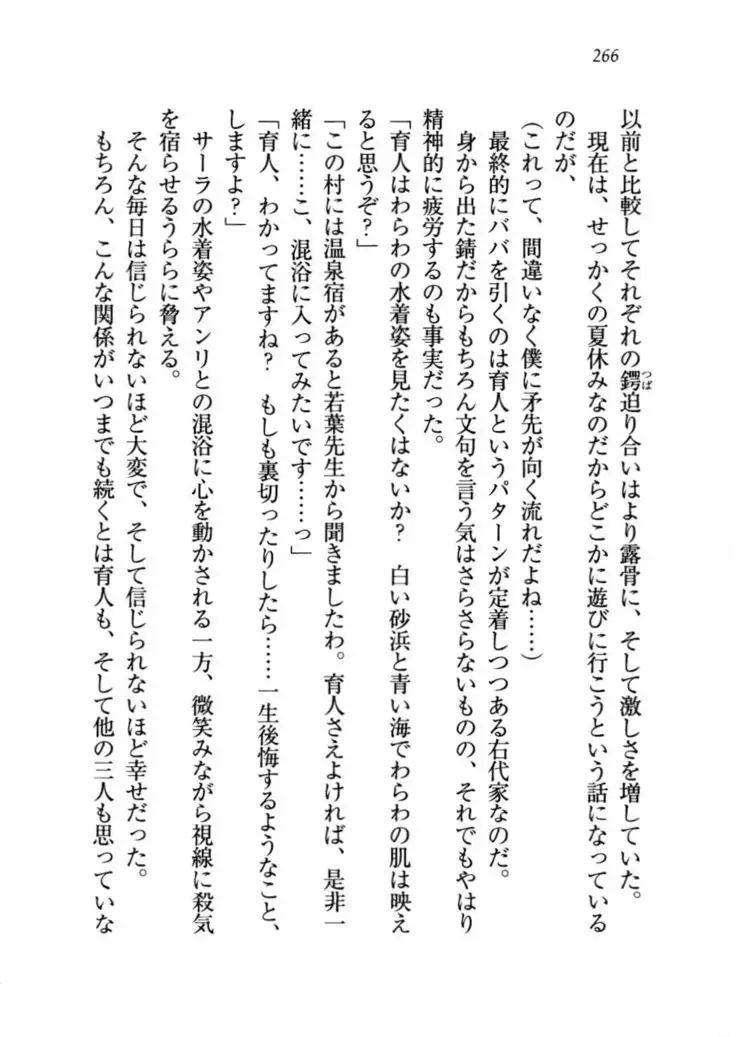 266
以前と比較してそれぞれの鍔迫り合いはより露骨に、そして激しさを増していた。
つば
現在は、せっかくの夏休みなのだからどこかに遊びに行こうという話になっている
のだが、
(これって、間違いなく僕に矛先が向く流れだよね……)
最終的にババを引くのは育人というパターンが定着しつつある右代家なのだ。
身から出た錆だからもちろん文句を言う気はさらさらないものの、それでもやはり
精神的に疲労するのも事実だった。
「育人はわらわの水着姿を見たくはないか? 白い砂浜と青い海でわらわの肌は映え
ると思うぞ?」
「この村には温泉宿があると若葉先生から聞きましたわ。育人さえよければ、是非一
緒に……こ、混浴に入ってみたいです……っ」
「育人、わかってますね? もしも裏切ったりしたら……一生後悔するようなこと、
しますよ?」
サーラの水着姿やアンリとの混浴に心を動かされる一方、微笑みながら視線に殺気
を宿らせるうららに脅える。
そんな毎日は信じられないほど大変で、そして信じられないほど幸せだった。
もちろん、こんな関係がいつまでも続くとは育人も、そして他の三人も思っていな